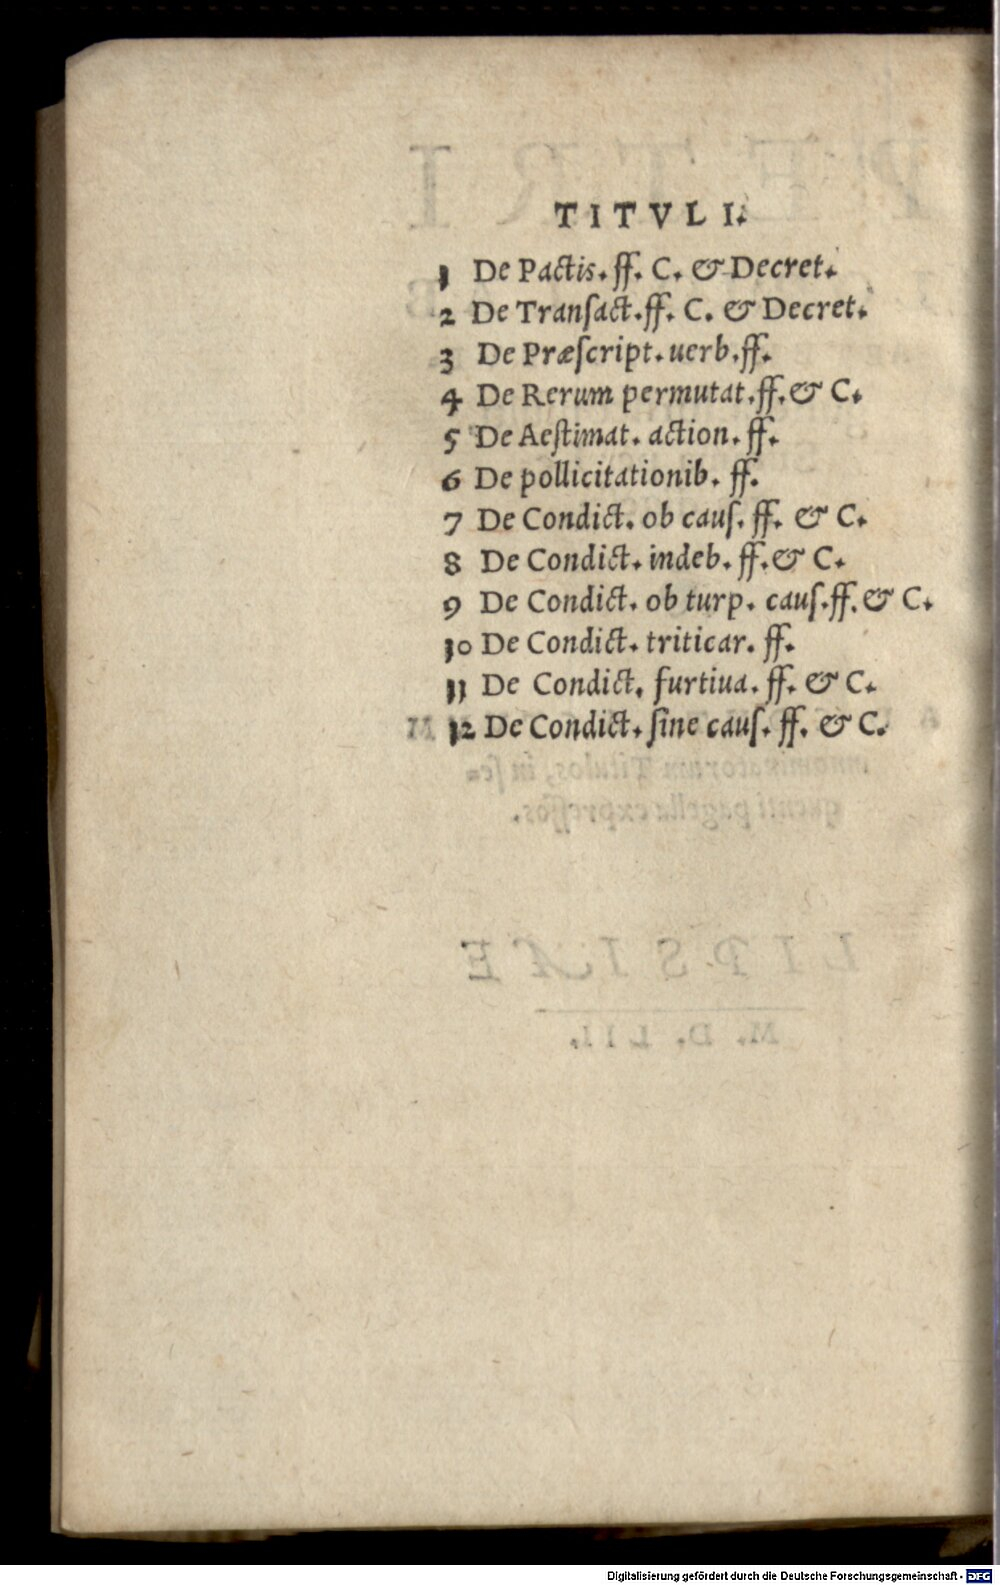 TITVLI.
1 De Pactis. ff. C. & Decret.
2 De Transact. ff. C. & Decret.
3 De Præſcript. uerb. ff.
4 De Rerum permutat. ff. & C.
5 De Aeſtimat. action. ff.
6 De pollicitationib. ff.
7 De Condict. ob cauſ. ff. & C.
8 De Condict. indeb. ff. & C.
9 De Condict. ob turp. cauſ. ff. & C.
10 De Condict. triticar. ff.
11 De Condict. furtiua. ff. & C.
12 De Condict. ſine cauſ. ff. & C.
innominatorum Titulos, in ſe=
quenti pagella expreſſos.
LIPSIAE
M. D. LII.
Digitalisierung gefördert durch die Deutsche Forschungsgemeinschaft - DFG